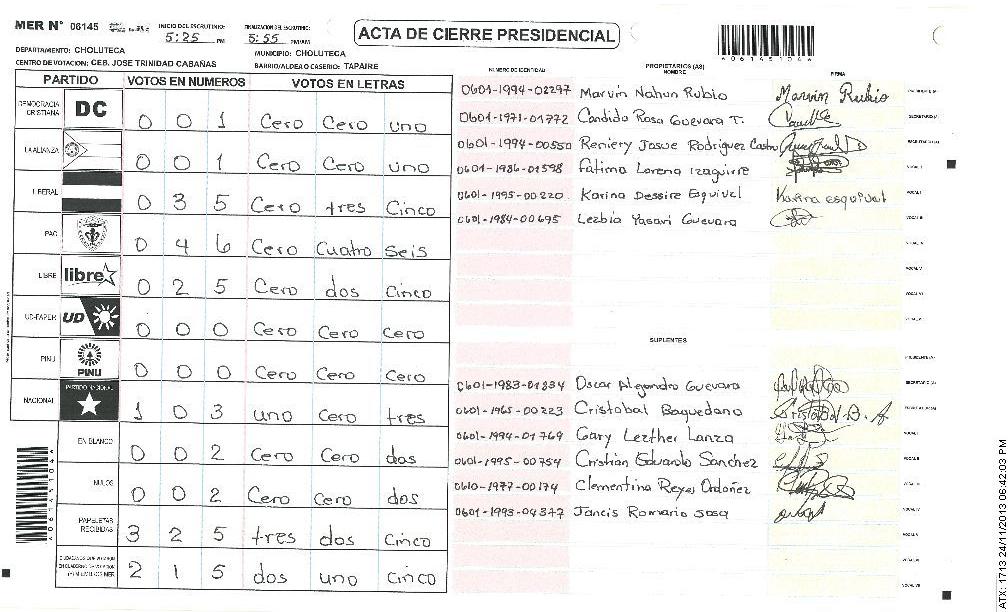 MER N° 06145
INICIO DEL ESCRUTINIO: 5:25 PM
FINALIZACION DEL ESCRUTINIO: 5:55 PM/AM
ACTA DE CIERRE PRESIDENCIAL
4061451046
DEPARTAMENTO: CHOLUTECA
MUNICIPIO: CHOLUTECA
CENTRO DE VOTACION: CEB. JOSE TRINIDAD CABAÑAS
BARRIO/ALDEA O CASERIO: TAPAIRE
PARTIDO VOTOS EN NUMEROS VOTOS EN LETRAS
DEMOCRACIA CRISTIANA DC 0 0 1 Cero Cero uno
LA ALIANZA 0 0 1 Cero Cero uno
LIBERAL 0 3 5 Cero tres Cinco
PAC 0 4 6 Cero Cuatro Seis
LIBRE libre 0 2 5 Cero dos Cinco
UD-FAPER UD 0 0 0 Cero Cero Cero
PINU PINU 0 0 0 Cero Cero Cero
NACIONAL PARTIDO NACIONAL 1 0 3 uno Cero tres
EN BLANCO 0 0 2 Cero Cero dos
NULOS 0 0 2 Cero Cero dos
PAPELETAS RECIBIDAS 3 2 5 tres dos Cinco
2 1 5 dos uno Cinco
NUMERO DE IDENTIDAD PROPIETARIOS (AS) NOMBRE FIRMA
0601-1994-02297 Marvin Nahun Rubio Marvin Rubio PRESIDENTE(A)
0601-1971-01772 Candido Rosa Guevara T. SECRETARIO(A)
0601-1994-00550 Reniery Josue Rodriguez Castro
0601-1986-01598 Fatima Lorena Izaguirre
0601-1995-00220 Karina Dessire Esquivel Karina esquivel
0601-1984-00695 Lezbia Yasari Guevara
SUPLENTES
PRESIDENTE(A)
0601-1983-01834 Oscar Alejandro Guevara SECRETARIO (A)
0601-1965-00223 Cristobal Baquedano Cristobal B. A
0601-1994-01769 Gary Lezther Lanza
0601-1995-00754 Cristian Eduardo Sanchez
0610-1977-00174 Clementina Reyes Ordoñez
0601-1993-04377 Jancis Romario Sosa
4061451046
ATX: 1713 24/11/2013 06:42:03 PM